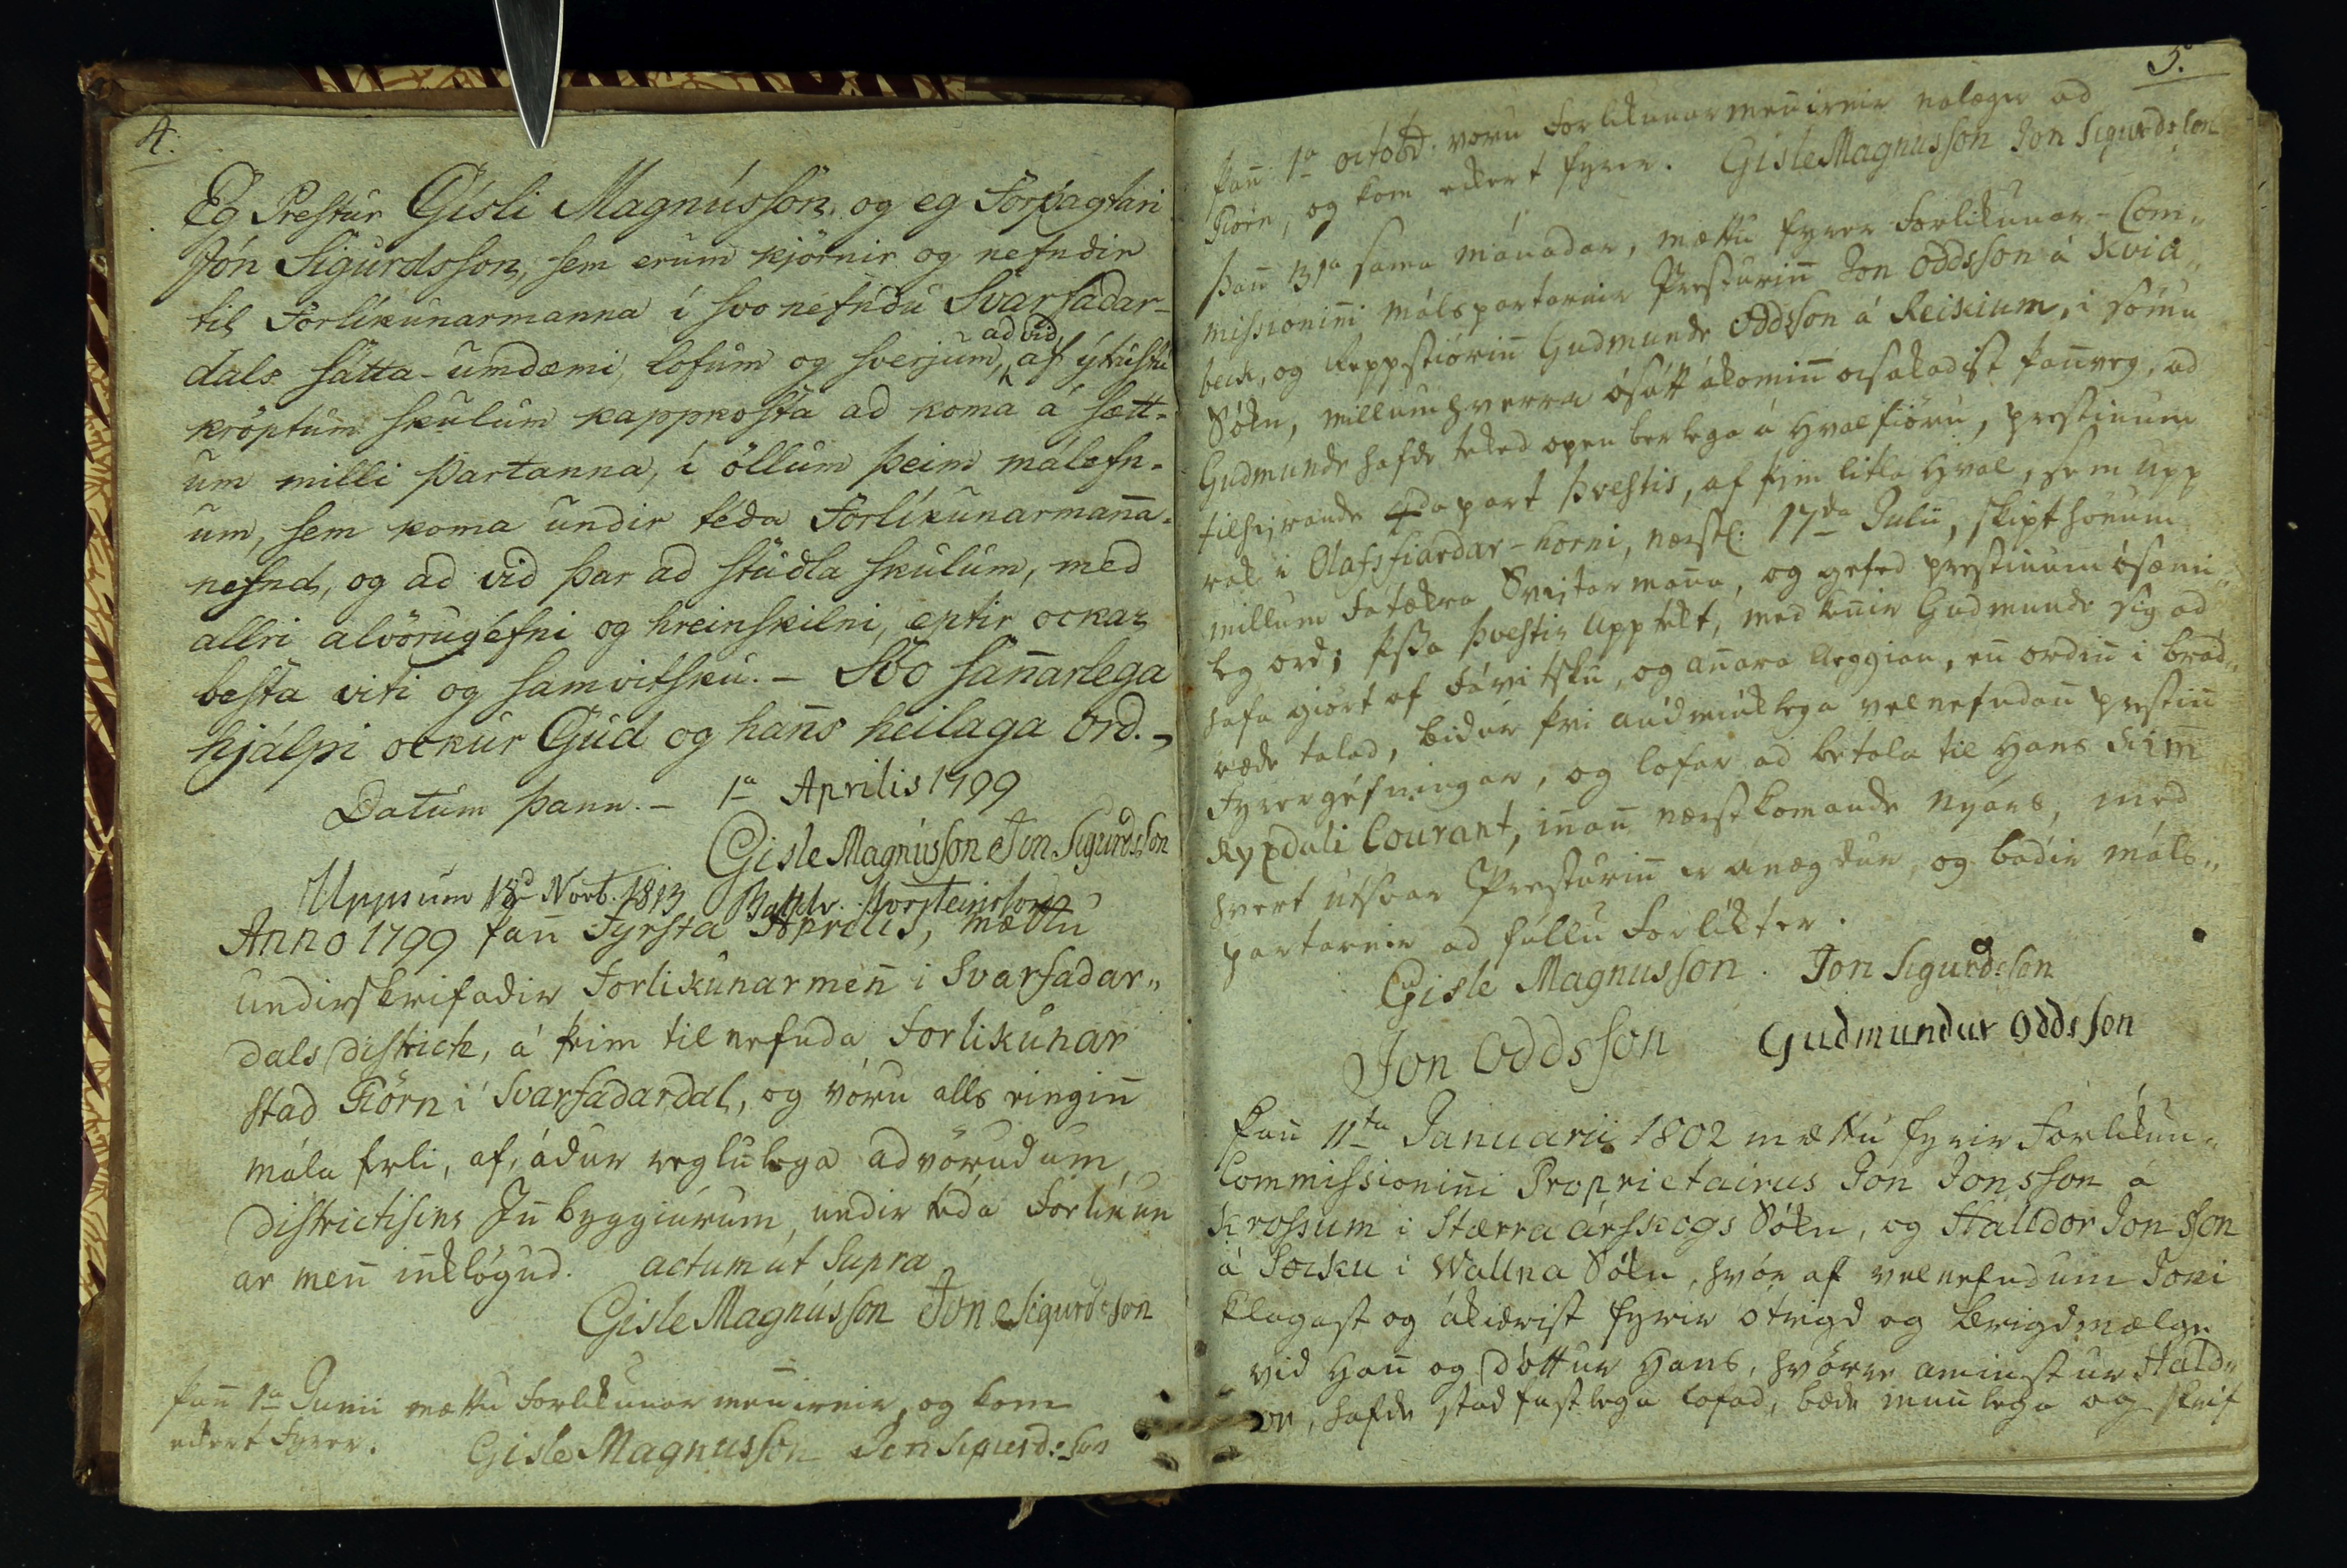 4.
Eg Prestur Gísli Magnússon, og eg Forpagtari
Jón Sigurdsson, sem erum kjörnir og nefndir
til Forlíkunarmanna í svo nefndu Svarfadar-
dals sátta-umdæmi, lofum og sverjum, ad vid af ýtrustu
kröptum skulum kappkosta ad koma á sætt-
um milli Partanna, í öllum þeim málefn-
um, sem koma undir téda Forlíkunarman̄a-
nefnd, og ad vid þar ad studla skulum, med
allri alvörugéfni og hreinskilni, eptir ockar
besta viti og samvitsku. - Svo san̄arlega
hjálpi ockur Gud og han̄s heilaga Ord. -
Datum þann. - 1a Aprilis 1799
Gisle Magnússon Jon Sigurdsson
Uppsum 18d Novb. 1813 Baldv. Þorsteinsson
Anno 1799 þan̄ Fyrsta Aprilis, mættu
undirskrifadir Forlikunarmen̄ i Svarfadar„
dals District, á þeim tilnefnda Forlikunar
stad Tiörn i Svarfadardal, og vóru alls eingin̄
mála ferli, af, ádur reglulega advörudum,
Districtisins In̄byggiurum, undir téda Forlikun
ar men̄ in̄klögud. actum ut supra
Gisle Magnússon Jon Sigurdsson
þan̄ 1a Junii mættu Forlikunar men̄irnir, og kom
eckert fyrer. Gisle Magnusson Jon Sigurdsson
5.
þan̄ 1a octobr. voru Forlikunarmen̄irnir nalæger ad
Tiörn, og kom eckert fyrer. Gisle Magnusson Jon Sigurdsson
Þan̄ 31a sama mánadar, mættu fyrer Forlikunar-Com„
missionin̄i málspartarnir Presturin̄ Jon Oddsson á Kvia„
beck, og Reppstiórin̄ Gudmunde Oddsson á Reikium, i sömu
Sókn, millum hverra ósátt ákomin̄ orsakadist þan̄veg, ad
Gudmunde hafde teked openberlega á Hvalfiöru, prestinum
tilheyrande 4da part þvestis, af þeim litla Hval, sem upp
rak i Olafsfiardar-horni, næstl. 17da Julii, skipt hönum
millum fatækra Sveitarman̄a, og gefed prestinum ósæmi„
leg ord; þessa þvestis upptekt, medken̄er Gudmunde sig ad
hafa giört af fávitsku, og an̄ara áeggian, en̄ ordin̄ i bræd„
ræde talad, bidur þvi audmiúklega velnefndan̄ prestin̄
fyrergéfningar, og lofar ad betala til Hans Fim̄
Rypdali Courant, in̄an̄ næstkomande nýárs, med
hvert útsvar Presturin̄ er anægdur, og bádir máls„
partarnir ad fullu Forlikter.
Gisle Magnusson. Jon Sigurdsson
Jon Oddsson Gudmundur Oddsson
Þan̄ 11ta Januarii 1802 mættu fyrir Forlikun„
Commissionin̄i Proprietairus Jon Jonsson á
Krossum i Stærraárskogs Sókn, og Halldor Jonsson
á Socku i Wallna Sókn, hvör af velnefndum Joni
klagast og ákiærist fyrir ótrigd og brigdmælge
vid Han̄ og Dóttur Hans, hvörre aminstur Hald„
or, hafde stadfastlega lofad, bæde mun̄lega og skrif